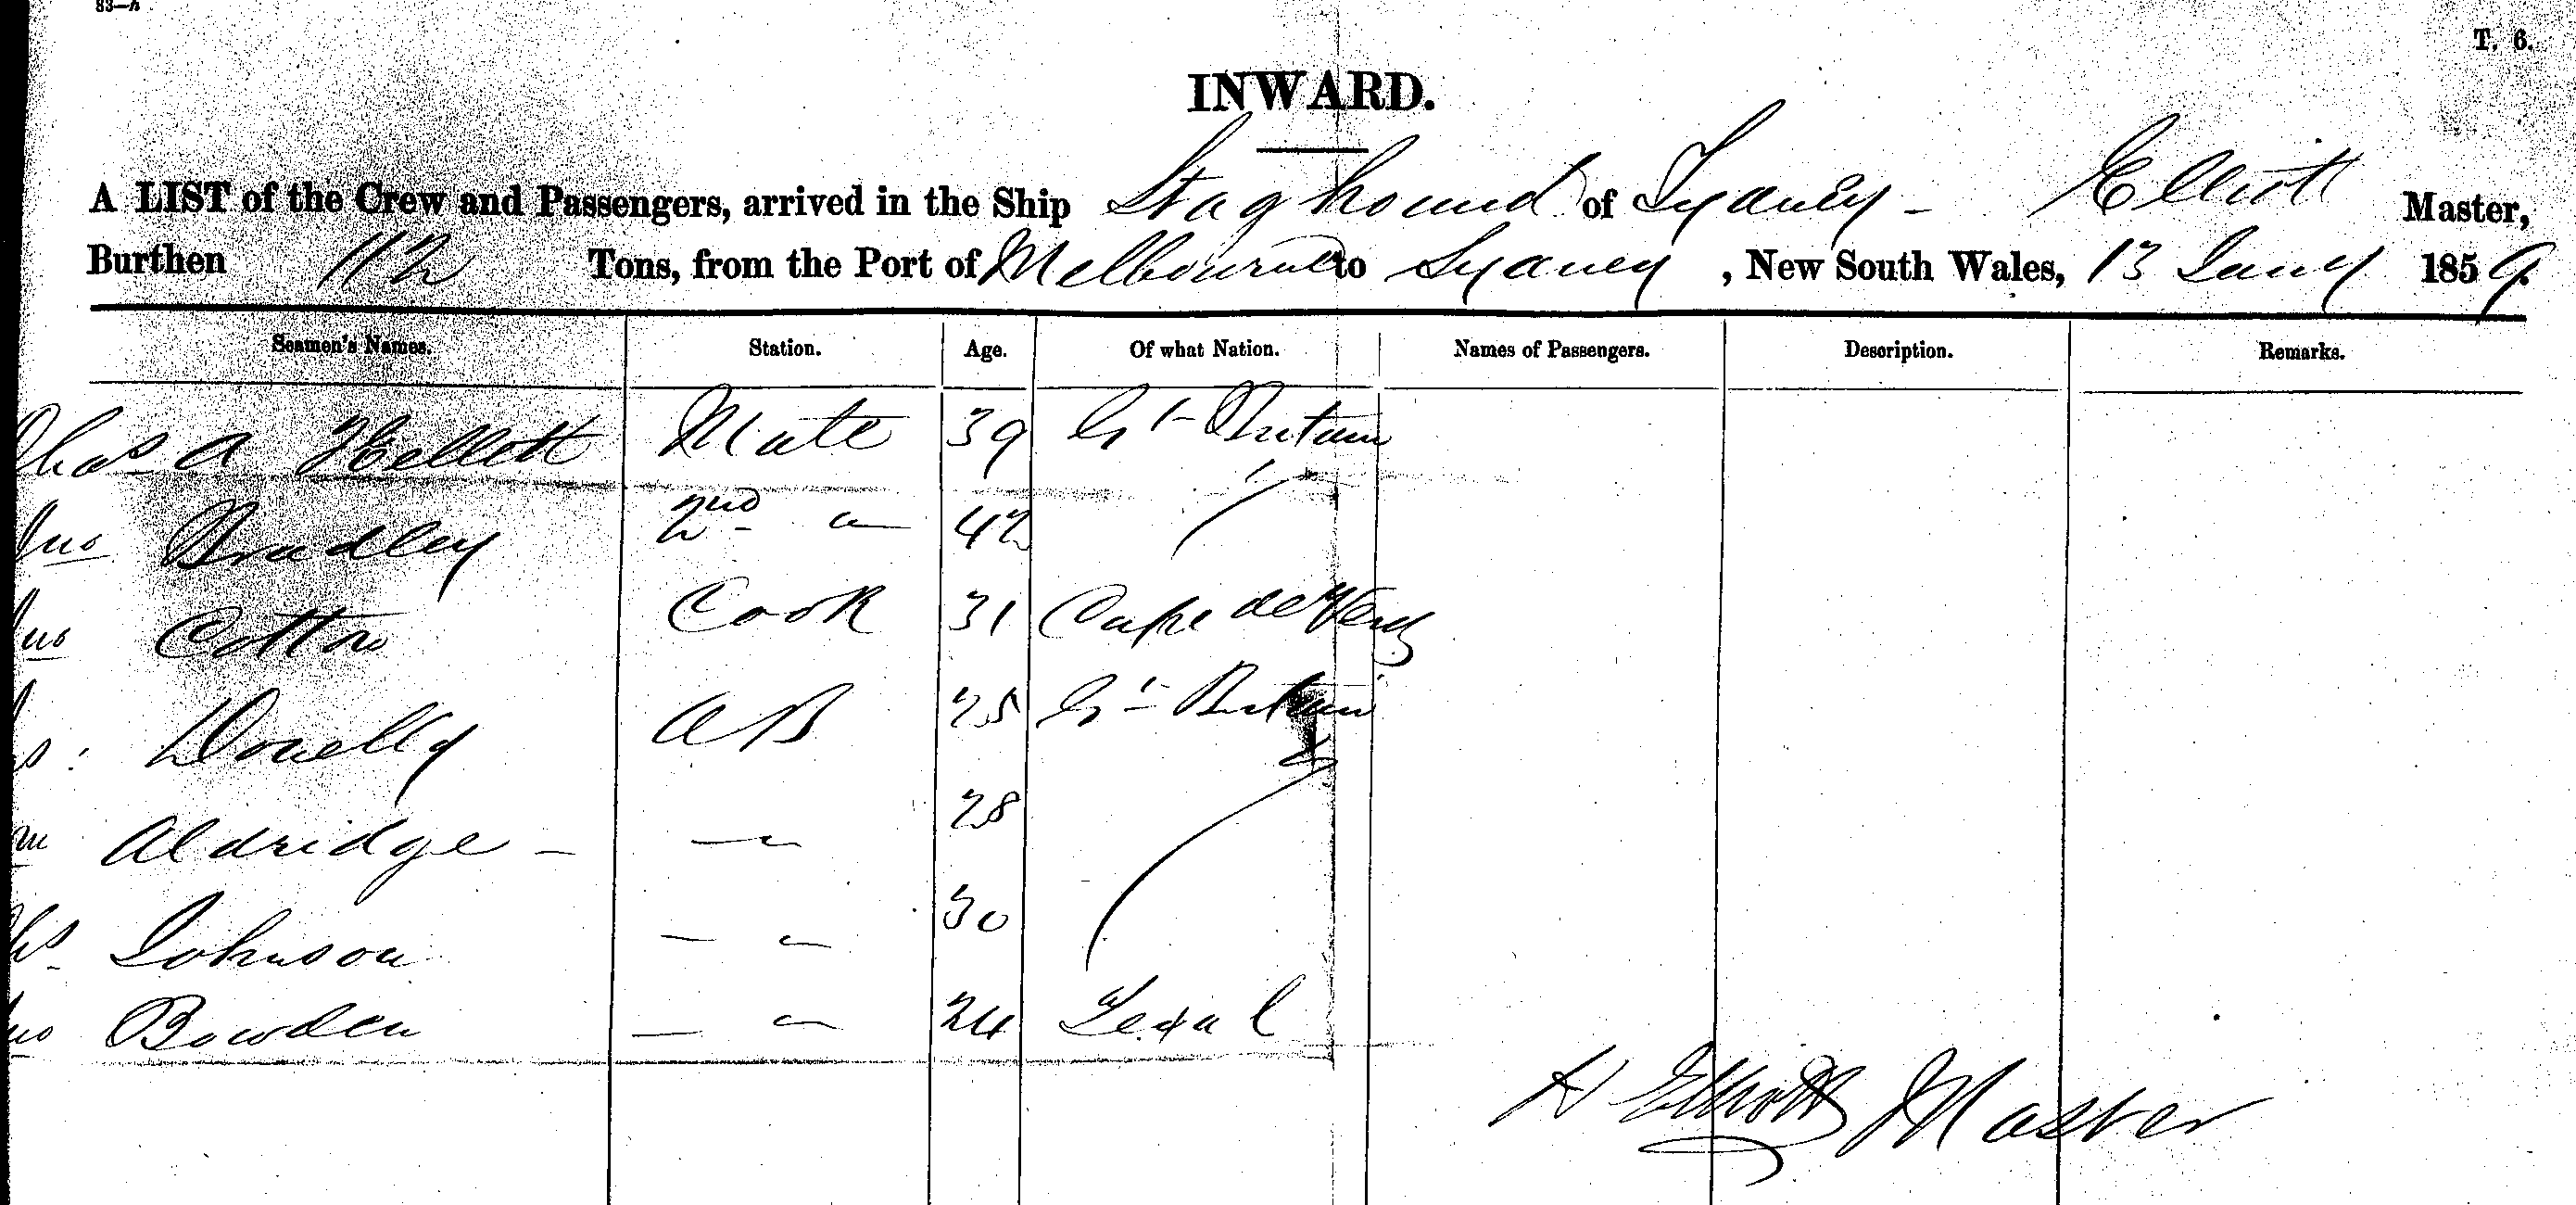 83—h
T. 6.
INWARD.
A LIST of the Crew and Passengers, arrived in the Ship Stag hound of Sydney - Elliott Master,
Burthen 112 Tons, from the Port of Melbourne to Sydney, New South Wales, 13 Jany 1859.
Seamen's Names. Station. Age. Of what Nation. Names of Passengers. Description. Remarks.
Chas A Hellott Mate 39 Gt Britain
Jno Bradley 2nd " 42
Jno Cotton Cook 31 Cape de Verd
Donelly AB 25 Gt Britain
Aldridge - " 28
Johnson - " 30
Jno Bowden - " 24 Texal
Elliott Master